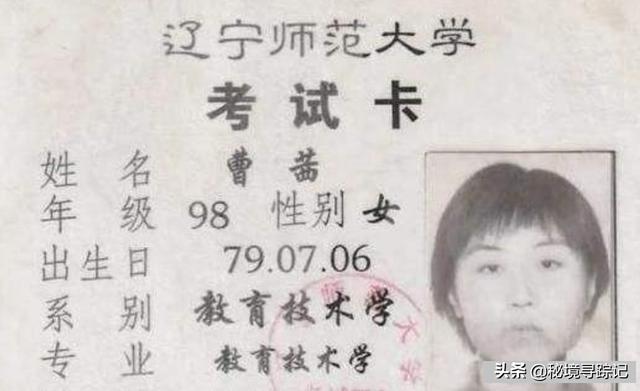 辽宁师范大学
考试卡
姓名 曹茜
年级 98 性别 女
出生日 79.07.06
系别 教育技术学
专业 教育技术学
师 大 学
头条 @秘境寻踪记